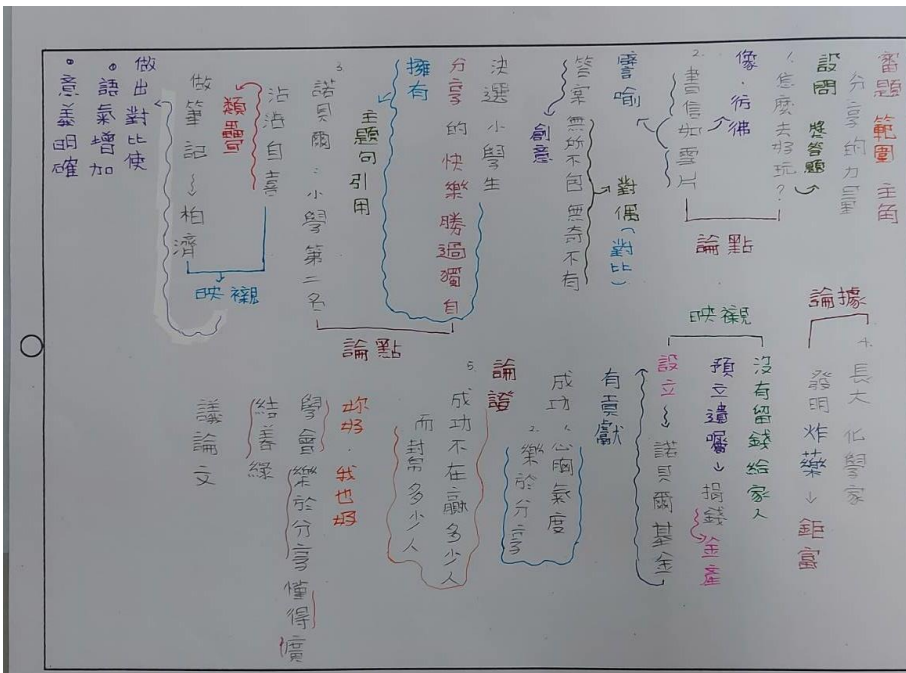 審題 範圍 主角
分享的力量
設問 獎答題
1. 怎麼去好玩?
像、彷彿
2. 書信如雪片
論點
譬喻
對偶(對比)
答案無所不包無奇不有
創意
決選小學生
分享的快樂勝過獨自
擁有
主題句引用
3.
諾貝爾:小學第二名
論點
沾沾自喜
類疊
做筆記→柏濟
映襯
做出對比使
•語氣增加
•意義明確
論據
4. 長大 化學家
發明炸藥→鉅富
映襯
沒有留錢給家人
預立遺囑→捐錢 金產
設立→諾貝爾基金
有貢獻
成功 1.心胸氣度
2.樂於分享
論證
5. 成功不在贏多少人
而封幫多少人
妳好.我也好
學會樂於分享懂得廣
結善緣
議論文